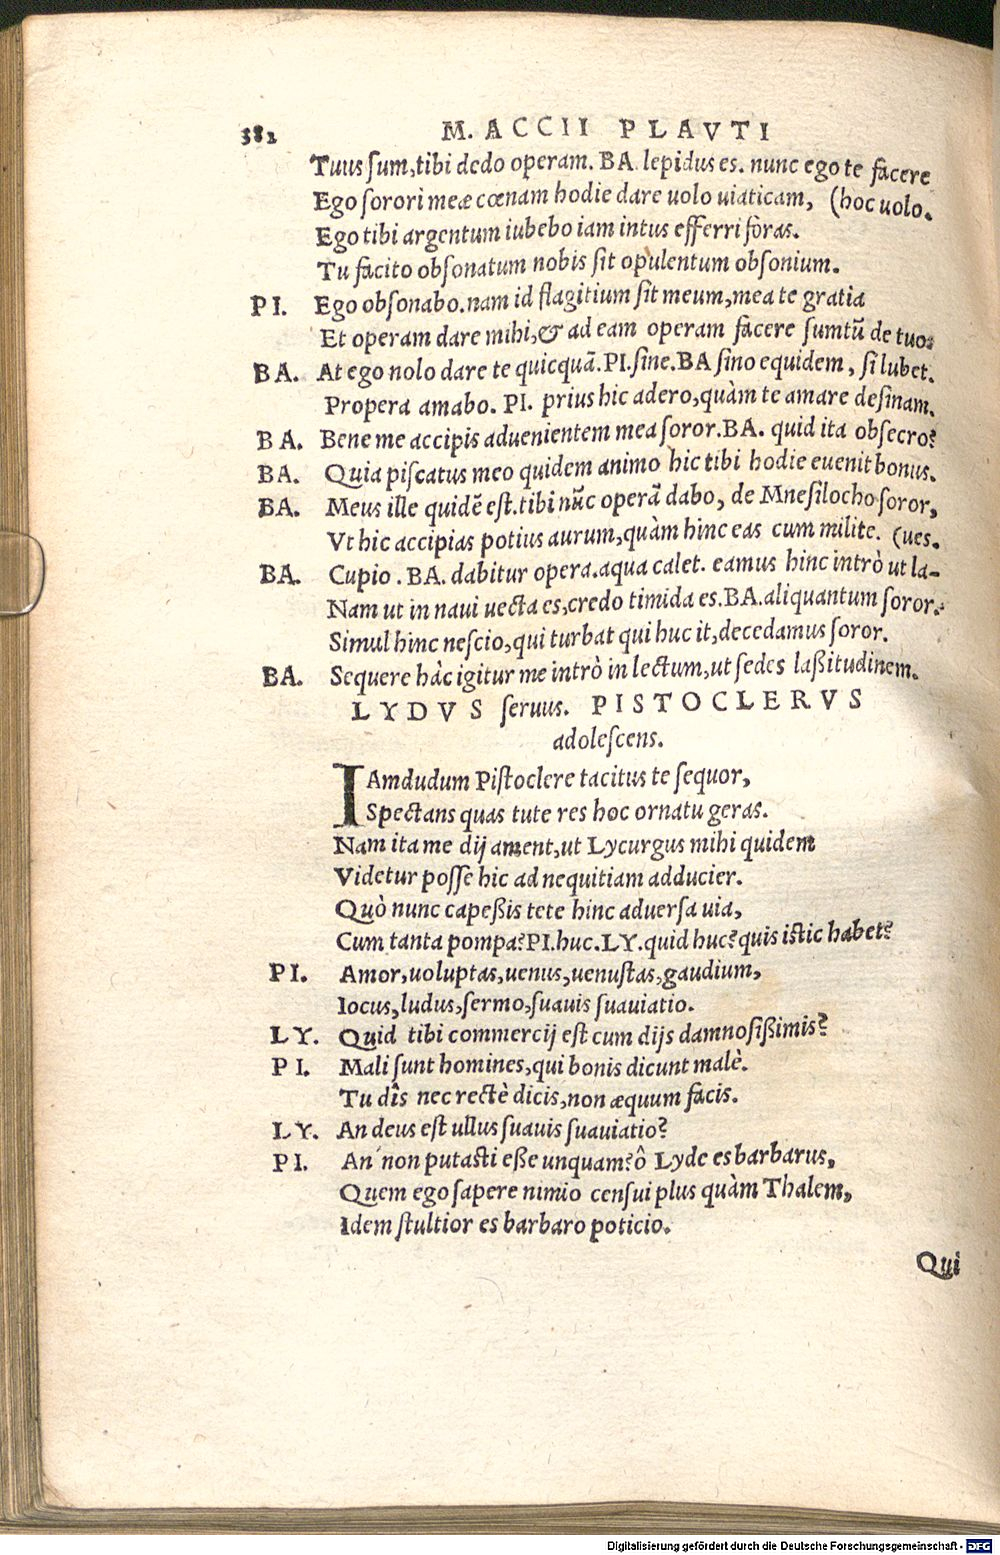 382 M. ACCII PLAVTI
Tuus ſum,tibi dedo operam. BA. lepidus es. nunc ego te facere
Ego ſorori meæ cœnam hodie dare uolo uiaticam, (hoc uolo.
Ego tibi argentum iubebo iam intus efferri foras.
Tu facito obſonatum nobis ſit opulentum obſonium.
PI. Ego obſonabo.nam id flagitium ſit meum,mea te gratia
Et operam dare mihi,& ad eam operam facere ſumtū de tuo.
BA. At ego nolo dare te quicquā.PI.ſine.BA ſino equidem, ſi lubet.
Propera amabo. PI. prius hic adero,quàm te amare deſinam.
BA. Bene me accipis aduenientem mea ſoror.BA. quid ita obſecro?
BA. Quia piſcatus meo quidem animo hic tibi hodie euenit bonus.
BA. Meus ille quidē eſt.tibi nūc operā dabo, de Mneſilocho ſoror,
Vt hic accipias potius aurum,quàm hinc eas cum milite. (ues.
BA. Cupio. BA. dabitur opera.aqua calet. eamus hinc intrò ut la-
Nam ut in naui uecta es,credo timida es.BA.aliquantum ſoror.
Simul hinc neſcio,qui turbat qui huc it,decedamus ſoror.
BA. Sequere hàc igitur me intrò in lectum,ut ſedes laßitudinem.
LYDVS ſeruus. PISTOCLERVS
adoleſcens.
IAmdudum Piſtoclere tacitus te ſequor,
Spectans quas tute res hoc ornatu geras.
Nam ita me dij ament,ut Lycurgus mihi quidem
Videtur poſſe hic ad nequitiam adducier.
Quò nunc capeßis tete hinc aduerſa uia,
Cum tanta pompa?PI.huc.LY.quid huc?quis iſtic habet?
PI. Amor,uoluptas,uenus,uenuſtas,gaudium,
Iocus,ludus,ſermo,ſuauis ſuauiatio.
LY. Quid tibi commercij eſt cum dijs damnoſißimis?
PI. Mali ſunt homines,qui bonis dicunt malè.
Tu dîs nec rectè dicis,non æquum facis.
LY. An deus eſt ullus ſuauis ſuauiatio?
PI. An non putaſti eße unquam?ô Lyde es barbarus,
Quem ego ſapere nimio cenſui plus quàm Thalem,
Idem ſtultior es barbaro poticio.
Qui
Digitalisierung gefördert durch die Deutsche Forschungsgemeinschaft - DFG